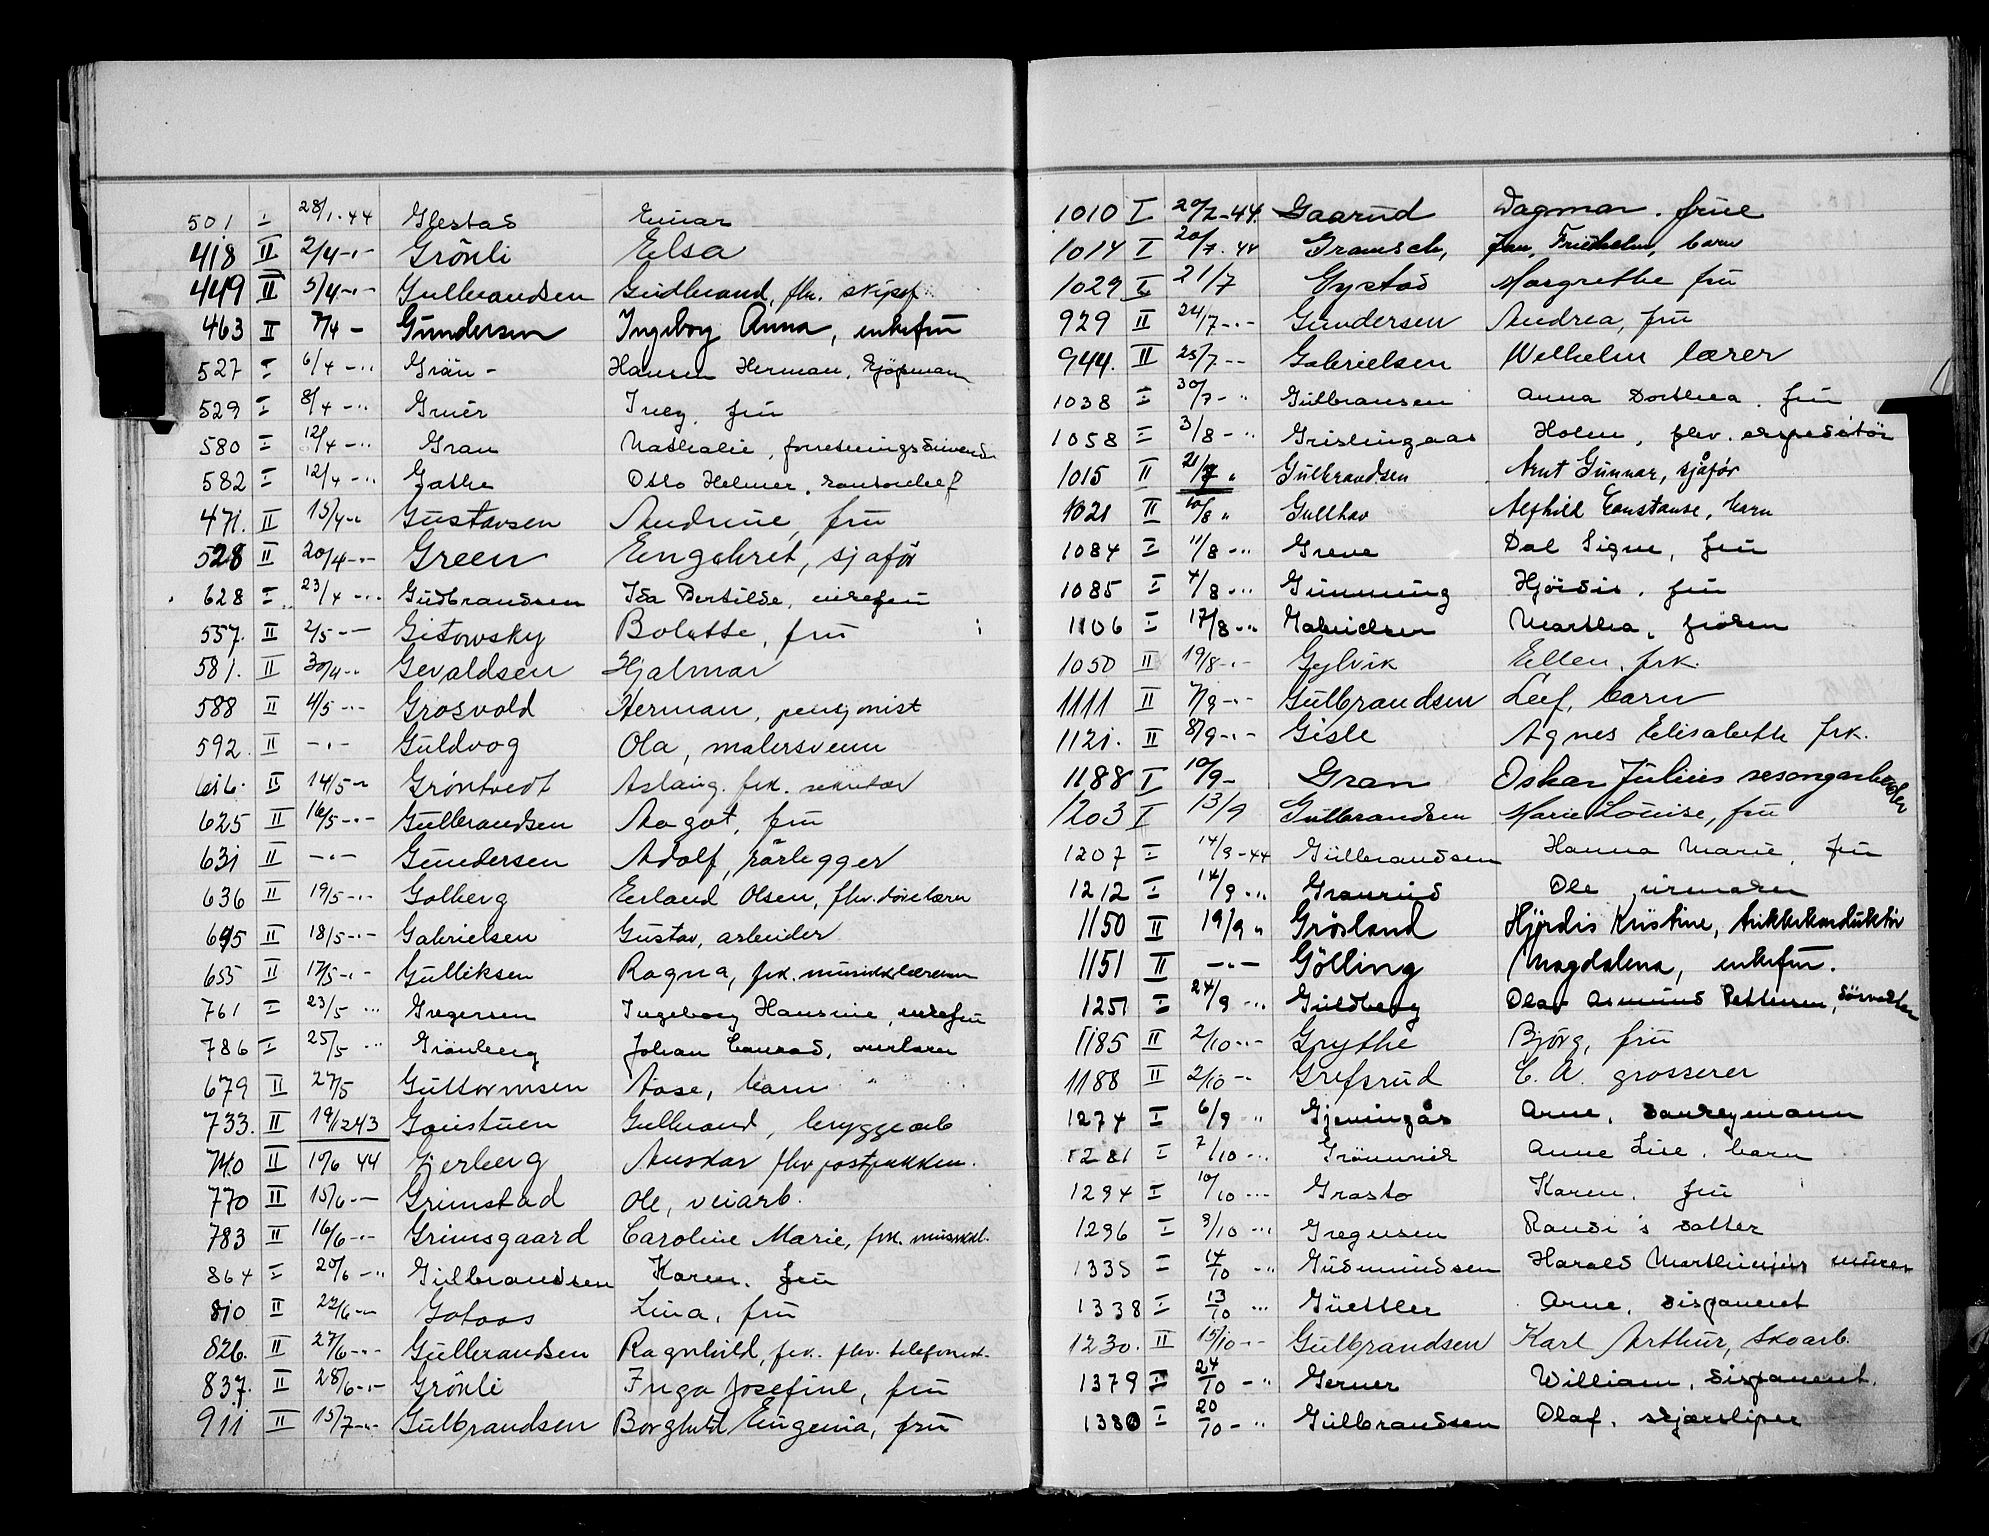 501 I 28/1-44 Glestad Einar
418 II 2/4-"- Grönli Elsa
449 II 5/4-"- Gulbrandsen Gudbrand, fhv. skipsf.
463 II 7/4 - Gundersen Ingeborg Anna, enkefru
527 I 6/4 -"- Grän - Hansen Herman, Kjöpmann
529 I 8/4 -"- Gruer Iney, fru
580 I 12/4 -"- Gran Nathalie, forretningsdrivende
582 I 12/4 -"- Gathe Otto Helmer,
471. II 15/4-"- Gustavsen Andrine, fru
528 II 20/4-"- Green Engebret, sjaför
628 I 23/4 -"- Gudbrandsen Ida Bertilde, enkefru
557. II 2/5 -"- Gitowsky Bolette, fru
581. II 30/4-"- Gevaldsen Hjalmar
588 II 4/5 -"- Grosvold Herman, pensjonist
592 II -"- Guldvog Ola, malersvenn
616. II 14/5-"- Gröntvedt Aslaug. frk. sekretær
625 II 16/5-"- Gulbrandsen Aagot, fru
631 II -"- Gundersen Adolf, rørlegger
636 II 19/5-"- Golberg Erland Olsen, fhv. dövelærer
695 II 18/5-"- Gabrielsen Gustav, arbeider
655 II 17/5-"- Gulliksen Ragna, frk. musikklærerinne
761 I 23/5 "- Gregersen Ingeborg Hansine, enkefru
786 I 25/5 "- Grönberg Johan Conrad, overlærer
679 II 27/5 Guttormsen Aase, barn
733. II 19/12 43 Gaustuen Gulbrand, bryggearb
740 II 10/6 44 Gjerberg Anskar fhv postpakkm.
770 II 15/6 -"- Grimstad Ole, veiarb.
783 II 16/6-"- Grimsgaard Caroline Marie, frk. musikkl.
864 I 20/6 -"- Gulbrandsen Karen. fru
810 II 22/6-"- Gotaas Lina, fru
826. II 27/6-"- Gulbrandsen Ragnhild, frk. fhv. telefonist.
837. II 28/6-"- Grönli Inga Josefine, fru
911 II 15/7-"- Gulbrandsen Borghild Eugenia, fru
1010 I 20/7-44. Gaarud Dagmar. frue
1014 I 20/7. 44 Gramsch, Jan, Friedhelm, barn
1029 I 21/7 Gystad Margrethe fru
929 II 24/7-"- Gundersen Andrea, fru
944. II 25/7 -- Gabrielsen Wilhelm lærer
1038 I 30/7 -" Gulbransen Anna Dorthea. fru
1058 I 3/8 -" Grislingaas Holm, fhv. expeditör
1015 II 21/7 " Gulbrandsen Arnt Gunnar, sjåför
1021 II 10/8 " Gullhav Alfhild Constanse, barn
1084 I 11/8 -" Greve Dal Signe, fru
1085 I 4/8 -" Gunnung Hjördis, fru
1106 I 17/8 -" Gabrielsen Martha, fröken
1050 II 19/8-"- Gylvik Ellen, frk.
1111 II 7/9 -"- Gulbrandsen Leif, barn
1121. II 8/9 -"- Gisle Agnes Elisabeth frk.
1188 I 10/9- Gran Oskar Julius sesongarbeider
1203 I 13/9 Gulbrandsen Marie Louise, fru
1207 I 14/9-44 Gulbrandsen Hanna Marie, fru
1212 I 14/9 -" Granrud Ole urmaker
1150 II 19/9 " Grösland Hjørdis Kristine, trikkekonduktör
1151 II -"- Gölling Magdalena, enkefru.
1251 I 24/9 -" Guldberg Olav Asmund Pettersen,
1185 II 2/10-"- Grythe Björg, fru
1188 II 2/10 -- Grefsrud C. A. grosserer
1274 I 6/9 " Gjeningås Arne,
1281 I 7/10 -" Grönnvik Anne Lise, barn
1294 I 10/10 -" Grasto Karen, fru
1296 I 9/10 -" Gregersen Randi's datter
1335 I 14/10 -" Gudmundsen Harald Marthinius murer
1338 I 13/10 -" Guettler Arne, disponent
1230. II 15/10 -- Gulbrandsen Karl Arthur, Skoarb.
1379 I 24/10 -" Gerner William, disponent.
1380 I 20/10 -" Gulbrandsen Olaf, skjærsliper